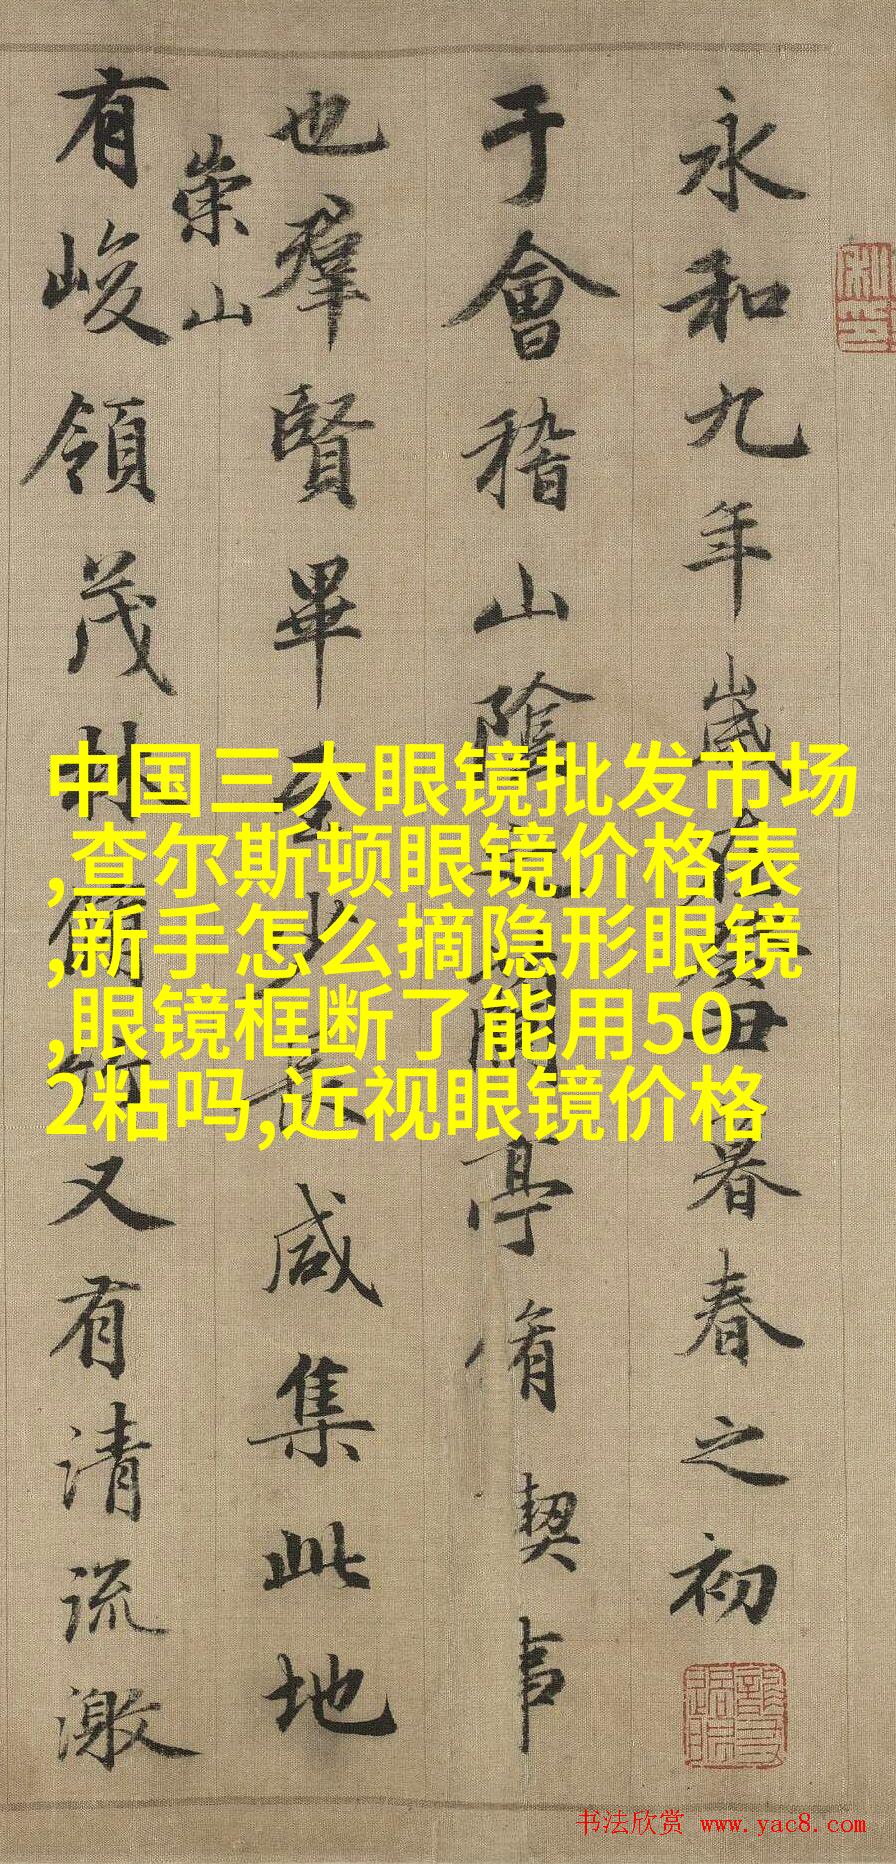 永和九年歲在癸丑暮春之初
于會稽山陰之蘭亭脩契事
也羣賢畢至少長咸集此地
崇山
有峻領茂林脩竹又有清流激
中国三大眼镜批发市场
,查尔斯顿眼镜价格表
,新手怎么摘隐形眼镜
,眼镜框断了能用50
2粘吗,近视眼镜价格
书法欣赏 www.yac8.com